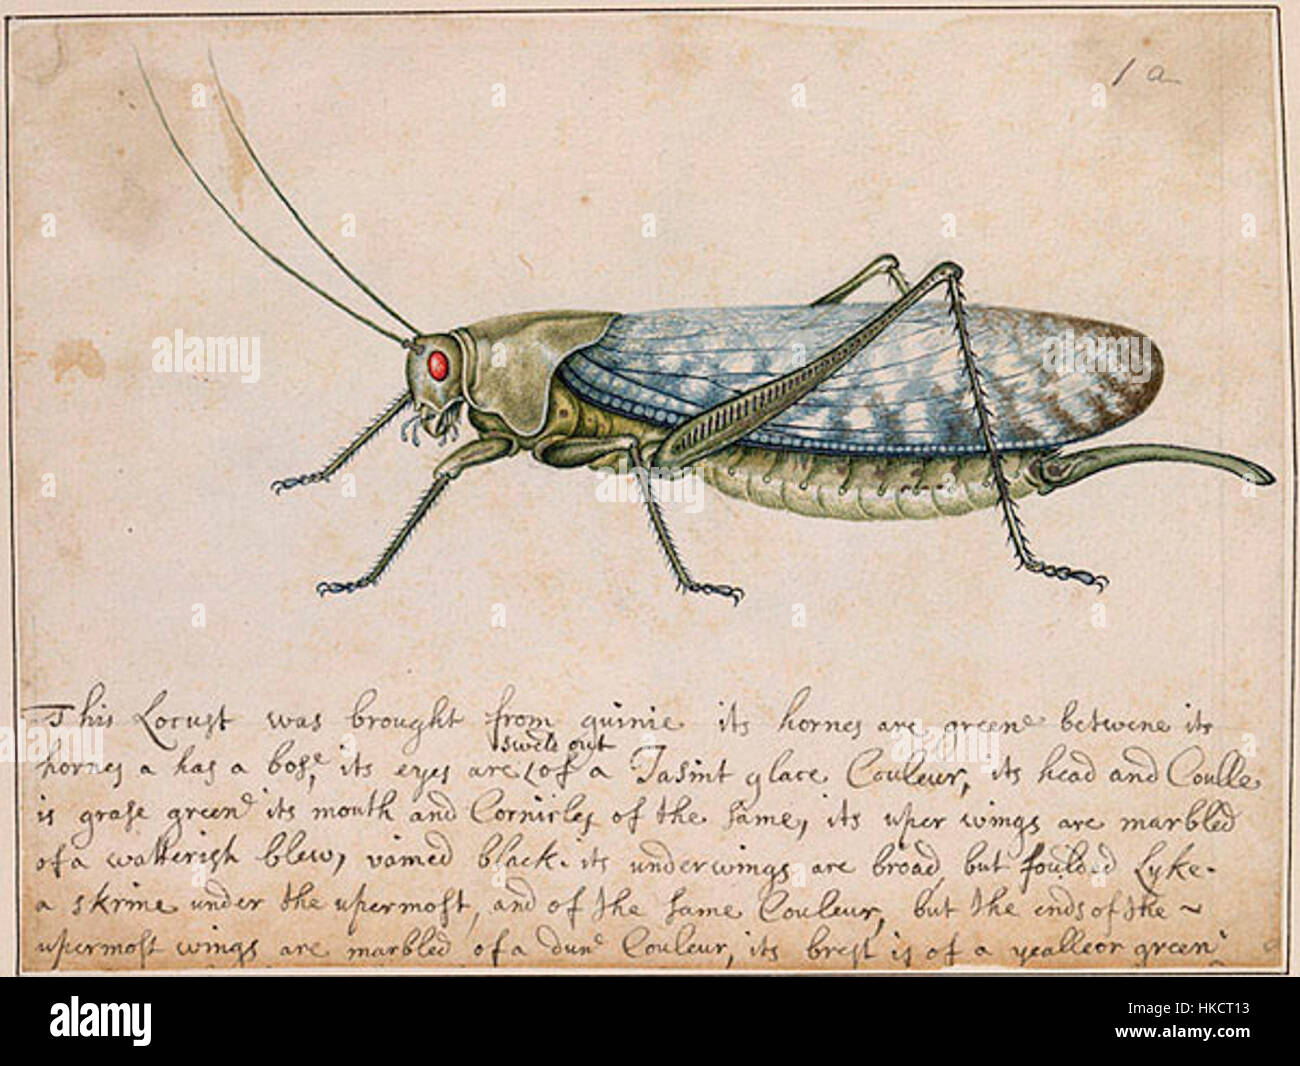 1 a
This Locust was brought from guinie its hornes are greene betwene its
swels out
hornes a has a bose, its eyes are of a Jasint glace Couleur, its head and Coulle
is grase greene its mouth and Cornicles of the same, its uper wings are marbled
of a watterish blew, vained black. its underwings are broad, but foulded Lyke
a skrine under the upermost, and of the same Couleur, but the ends of the ~
upermost wings are marbled of a dune Couleur, its brest is of a yealleor green
a alamy
alamy
Image ID: HKCT13
www.alamy.com